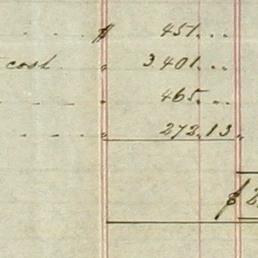 $ 451. . .
cost " 3401. . .
" 465. . .
" 272.13
$ 2